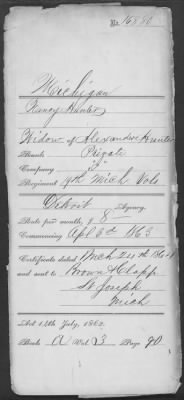 No. 16880
Michigan
Nancy Hunter
Widow of Alexander Hunter
Rank Private
Company "I"
Regiment 19th Mich Vols
Detroit Agency.
Rate per month, $ 8
Commencing Apl 3d 1863
Certificate dated Mch 24th 1864
and sent to Brown & Clapp
St Joseph
Mich
Act 14th July, 1862.
Book A Vol 3 Page 90